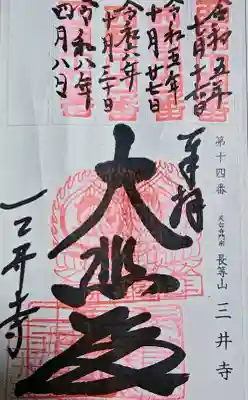 令和五年
七月十七日
令和五年
十月廿七日
令和六年
十月三十日
令和八年
四月八日
第十四番
天台寺門宗
長等山
三井寺
奉拝
大悲殿
三井寺